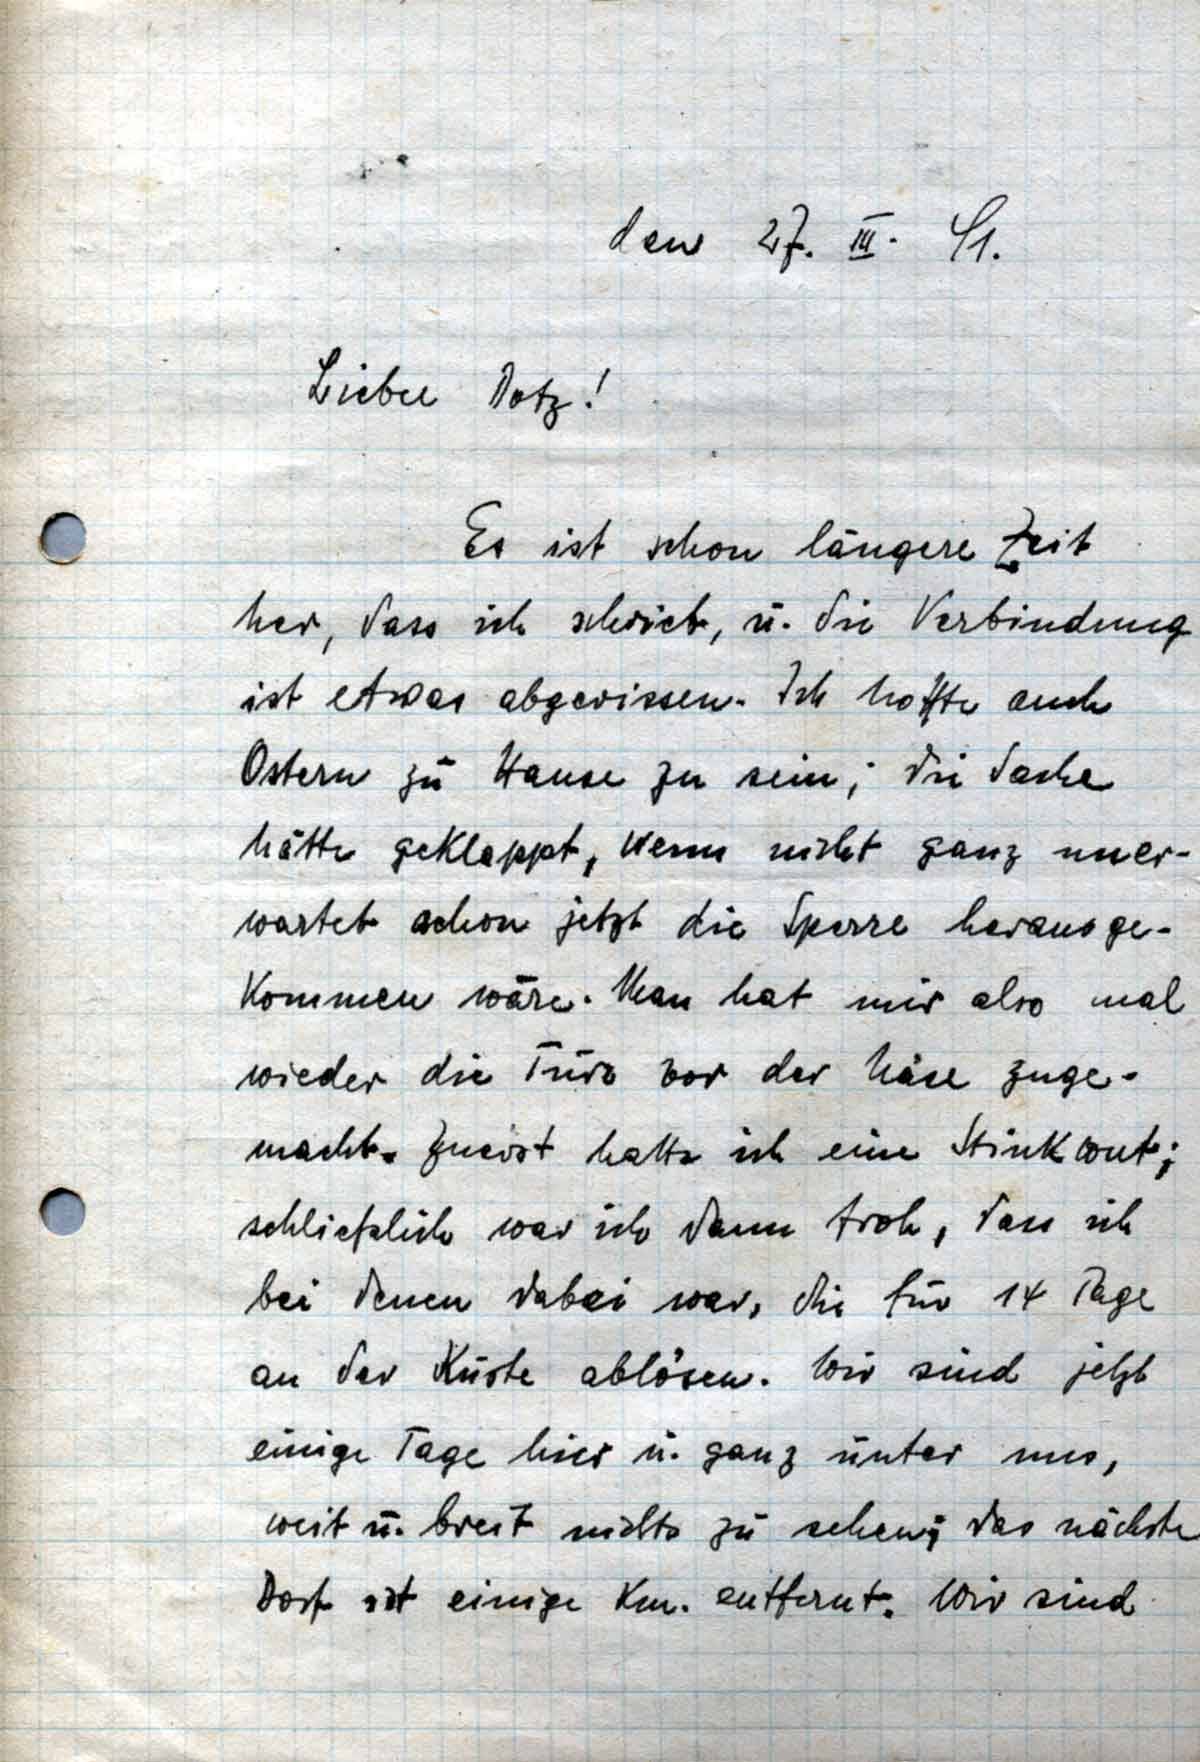 den 27. III. 41.
Lieber Dotz!
Es ist schon längere Zeit
her, dass ich schrieb, u. die Verbindung
ist etwas abgerissen. Ich hoffte auch
Ostern zu Hause zu sein; die Sache
hätte geklappt, wenn nicht ganz uner-
wartet schon jetzt die Sperre herausge-
kommen wäre. Man hat mir also mal
wieder die Türe vor der Näse zuge-
macht. Zuerst hatte ich eine Stinkwut;
schließlich war ich dann froh, dass ich
bei denen dabei war, die für 14 Tage
an der Küste ablösen. Wir sind jetzt
einige Tage hier u. ganz unter uns,
weit u. breit nichts zu sehen; das nächste
Dorf ist einige Km. entfernt. Wir sind